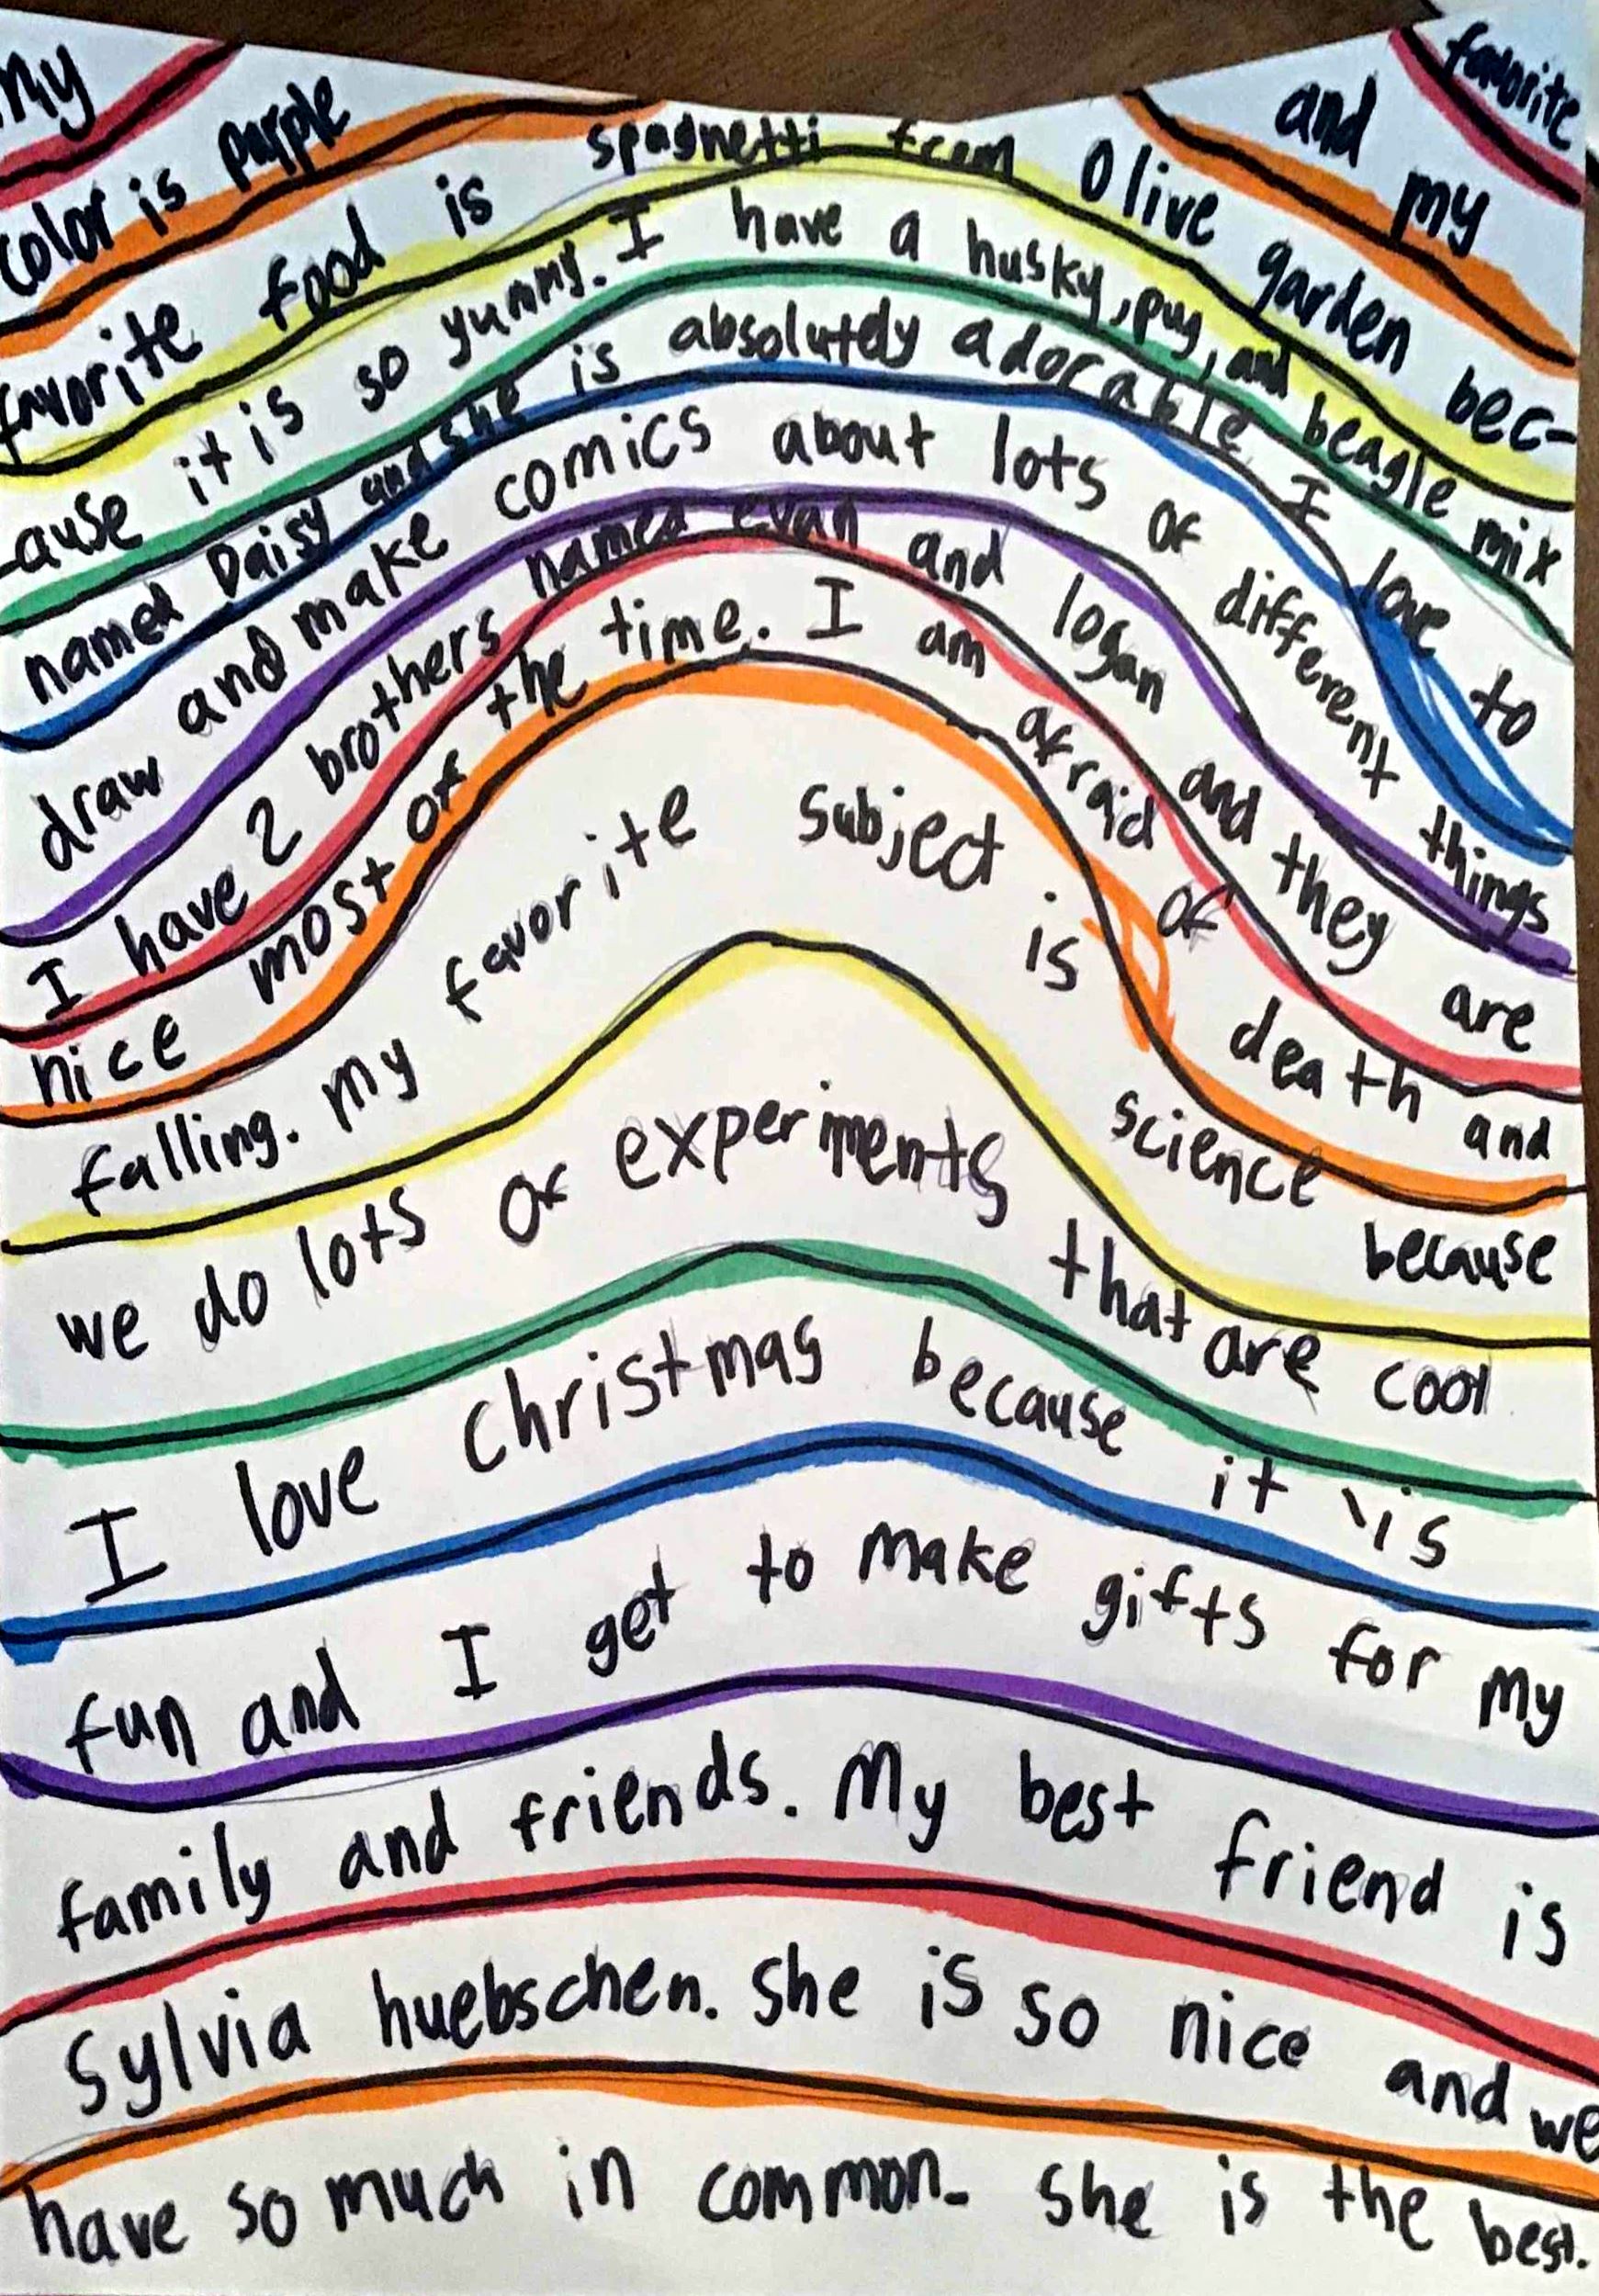 My favorite
color is purple and my
favorite food is spaghetti from Olive garden bec-
-ause it is so yummy. I have a husky, pug, and beagle mix
named Daisy and she is absolutely adorable I love to
draw and make comics about lots of different things
I have 2 brothers named evan and logan and they are
nice most of the time. I am afraid of death and
falling. my favorite subject is science because
we do lots of experiments that are cool
I love christmas because it is
fun and I get to make gifts for my
family and friends. My best friend is
Sylvia huebschen. She is so nice and we
have so much in common. She is the best.